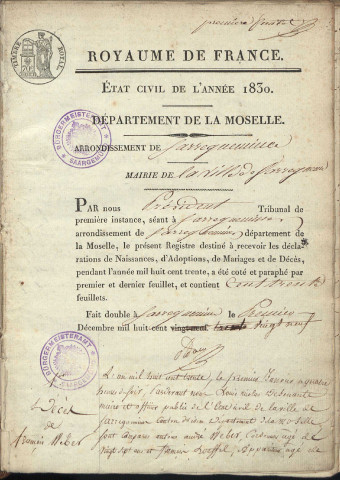 première feuille
TIMBRE ROYAL
ROYAUME DE FRANCE.
ÉTAT CIVIL DE L'ANNÉE 1830.
DÉPARTEMENT DE LA MOSELLE.
BÜRGERMEISTERAMT SAARGEMÜND
ARRONDISSEMENT DE Sarreguemines
MAIRIE DE la ville de Sarreguemines
PAR nous Président Tribunal de
première instance, séant à Sarreguemines
arrondissement de Sarreguemines, département de
la Moselle, le présent Registre destiné à recevoir les décla-
rations de Naissances, d'Adoptions, de Mariages et de Décès,
pendant l'année mil huit cent trente, a été coté et paraphé par
premier et dernier feuillet, et contient cent trente
feuillets.
Fait double à Sarreguemines le Premier
Décembre mil huit cent vingt neuf
BÜRGERMEISTERAMT SAARGEMÜND
L'an mil huit cent trente, le premier Janvier à quatre
heures du soir, pardevant nous Louis
maire et officier public de l'Etat civil de la ville de
Sarreguemines Canton du dit Département de la Moselle
sont comparus Weber, âgé de
vingt sept ans et
Décès
de
François Weber